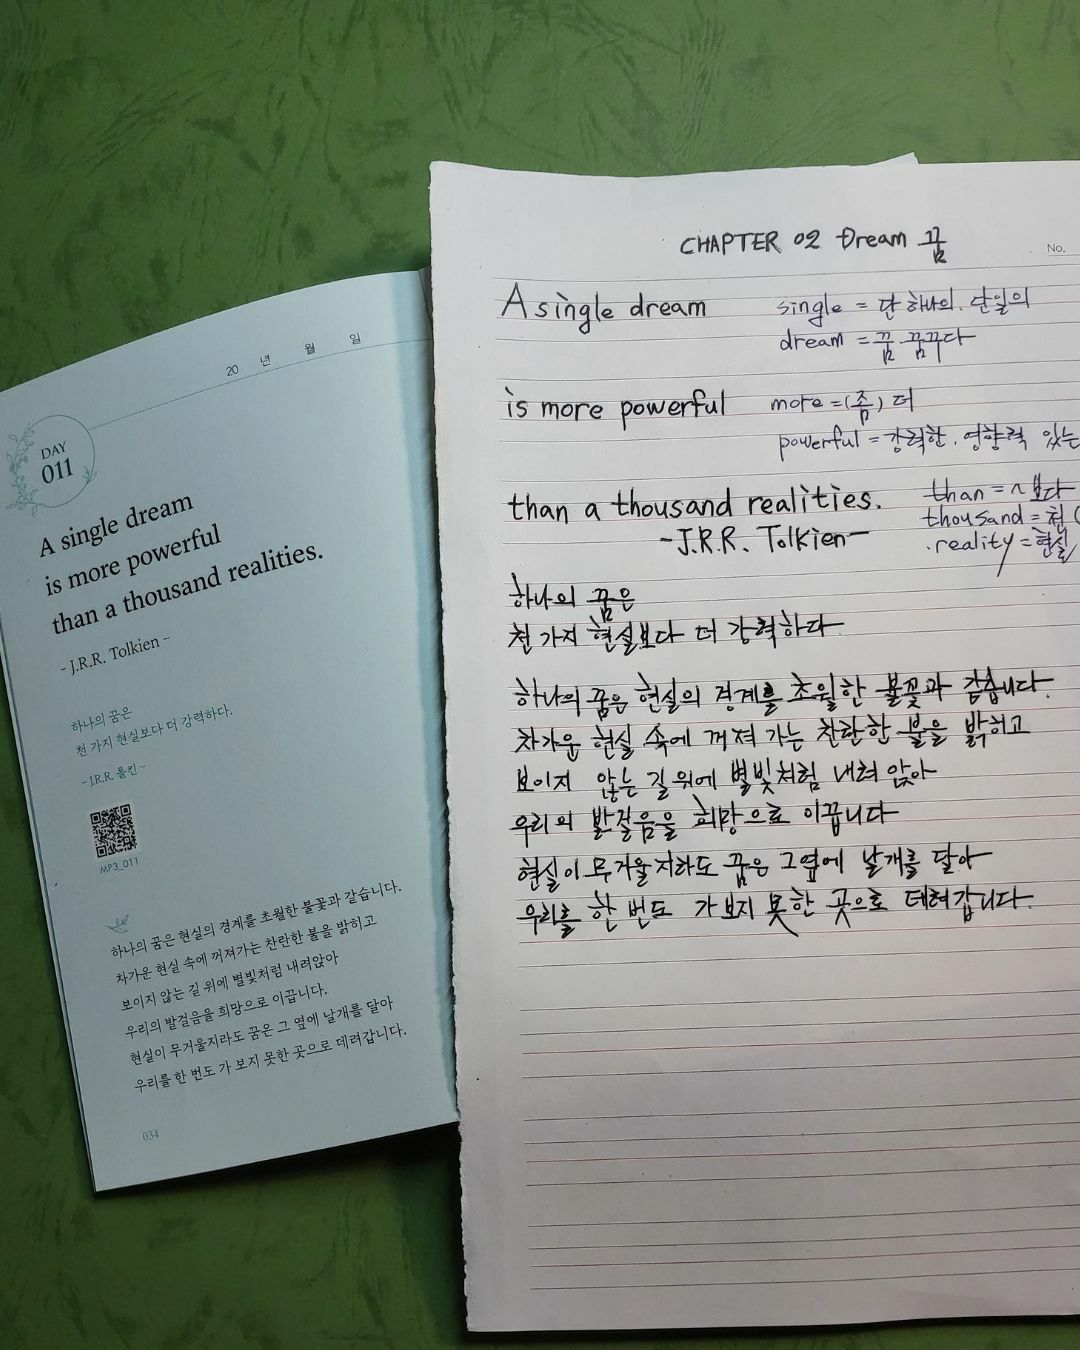 20 년 월 일
DAY
011
A single dream
is more powerful
than a thousand realities.
- J.R.R. Tolkien -
하나의 꿈은
천 가지 현실보다 더 강력하다.
- J.R.R. 톨킨 -
MP3_011
하나의 꿈은 현실의 경계를 초월한 불꽃과 같습니다.
차가운 현실 속에 꺼져가는 찬란한 불을 밝히고
보이지 않는 길 위에 별빛처럼 내려앉아
우리의 발걸음을 희망으로 이끕니다.
현실이 무거울지라도 꿈은 그 옆에 날개를 달아
우리를 한 번도 가 보지 못한 곳으로 데려갑니다.
034
CHAPTER 02 Dream 꿈
No.
A single dream
single = 단 하나의. 단일의
dream = 꿈. 꿈꾸다
is more powerful
more = (좀) 더
powerful = 강력한. 영향력 있는
than a thousand realities.
than = ~보다
thousand = 천 (
-J.R.R. Tolkien-
.reality = 현실
하나의 꿈은
천 가지 현실보다 더 강력하다.
하나의 꿈은 현실의 경계를 초월한 불꽃과 같습니다.
차가운 현실 속에 꺼져 가는 찬란한 불을 밝히고
보이지 않는 길 위에 별빛처럼 내려 앉아
우리의 발걸음을 희망으로 이끕니다
현실이 무거울지라도 꿈은 그옆에 날개를 달아
우리를 한 번도 가 보지 못한 곳으로 데려갑니다.